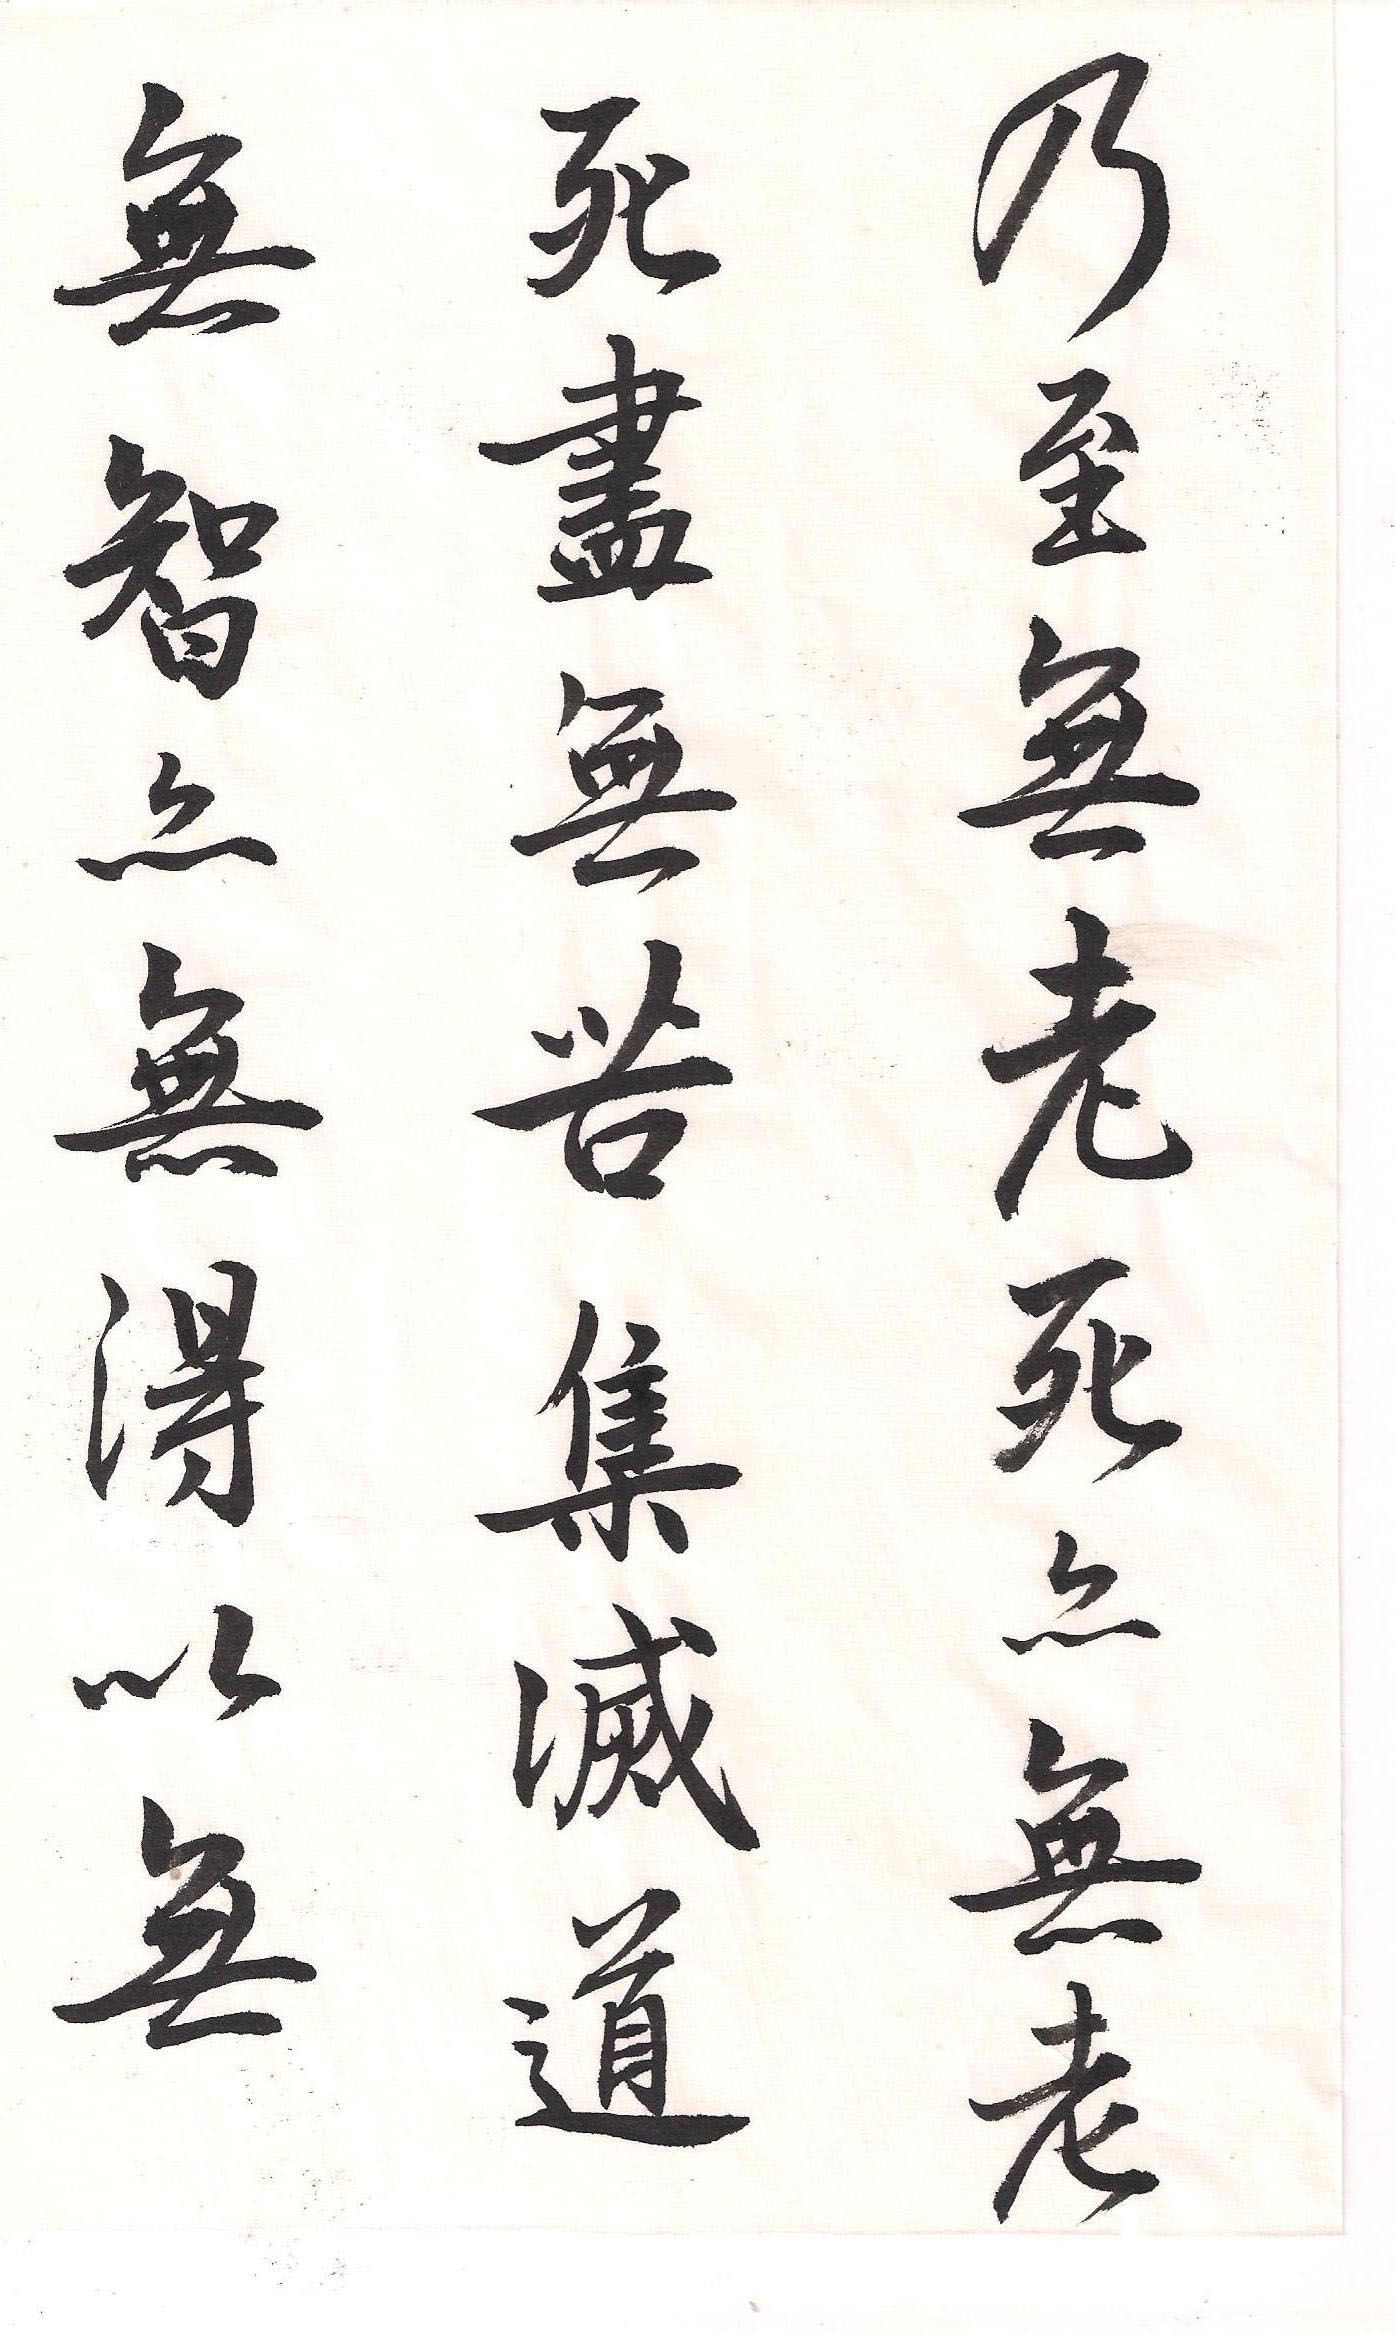 乃至無老死亦無老
死盡無苦集滅道
無智亦無得以無